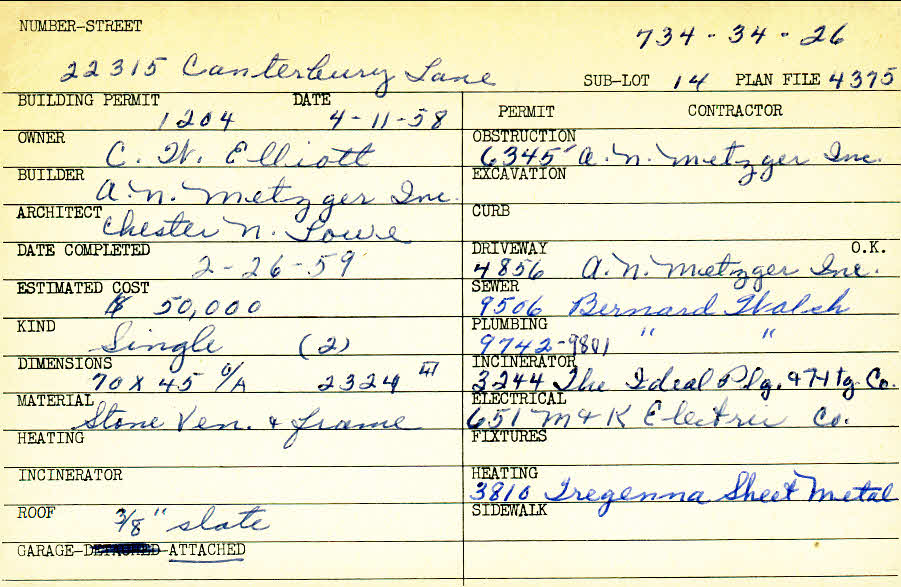 NUMBER-STREET
734-34-26
22315 Canterbury Lane
SUB-LOT 14 PLAN FILE 4375
BUILDING PERMIT DATE
1204 4-11-58
PERMIT CONTRACTOR
OWNER
C. W. Elliott
OBSTRUCTION
6345 A. N. Metzger Inc.
BUILDER
A. N. Metzger Inc.
EXCAVATION
ARCHITECT
Chester N. Lowe
CURB
DATE COMPLETED
2-26-59
DRIVEWAY O.K.
4856 A. N. Metzger Inc.
ESTIMATED COST
$ 50,000
SEWER
9506 Bernard Walsh
KIND
Single (2)
PLUMBING
9742-9801 " "
DIMENSIONS
70 x 45 O/A 2324
INCINERATOR
3244 The Ideal Plg. & Htg. Co.
MATERIAL
Stone Ven. & frame
ELECTRICAL
651 M & K Electric Co.
HEATING
FIXTURES
INCINERATOR
HEATING
3810 Tregenna Sheet Metal
ROOF
3/8" slate
SIDEWALK
GARAGE-DETACHED-ATTACHED